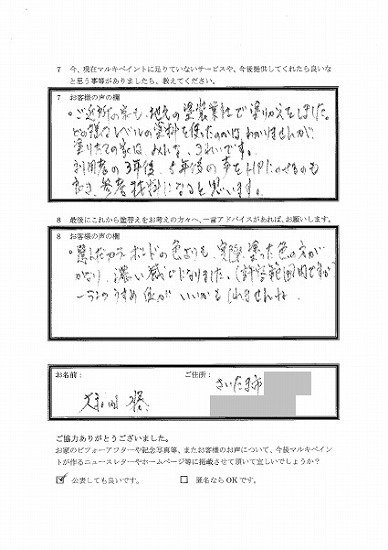 7 今、現在マルキペイントに足りていないサービスや、今後提供してくれたら良いな
と思う事等がありましたら、教えてください。
7 お客様の声の欄
・ご近所の家も、地元の塗装業社で塗りかえをしました。
どの様なレベルの塗料を使ったのかはわかりませんが、
塗りたての家は、みんな、きれいです。
利用者の3年後、5年後の声をHPにのべるのも
良き、参考材料になると思います。
8 最後にこれから塗替えをお考えの方々へ、一言アドバイスがあれば、お願いします。
8 お客様の声の欄
・選んだカラーボードの色よりも、実際、塗った色の方が
かなり、濃い感じになりました。(許容範囲内ですが)
一ランクうすめ位が いいかもしれませんね。
お名前: ご住所:
さいたま市
ご協力ありがとうございました。
お家のビフォーアフターや記念写真等、またお客様のお声について、今後マルキペイント
が作るニュースレターやホームページ等に掲載させて頂いて宜しいでしょうか?
☑ 公表しても良いです。 □ 匿名ならOKです。